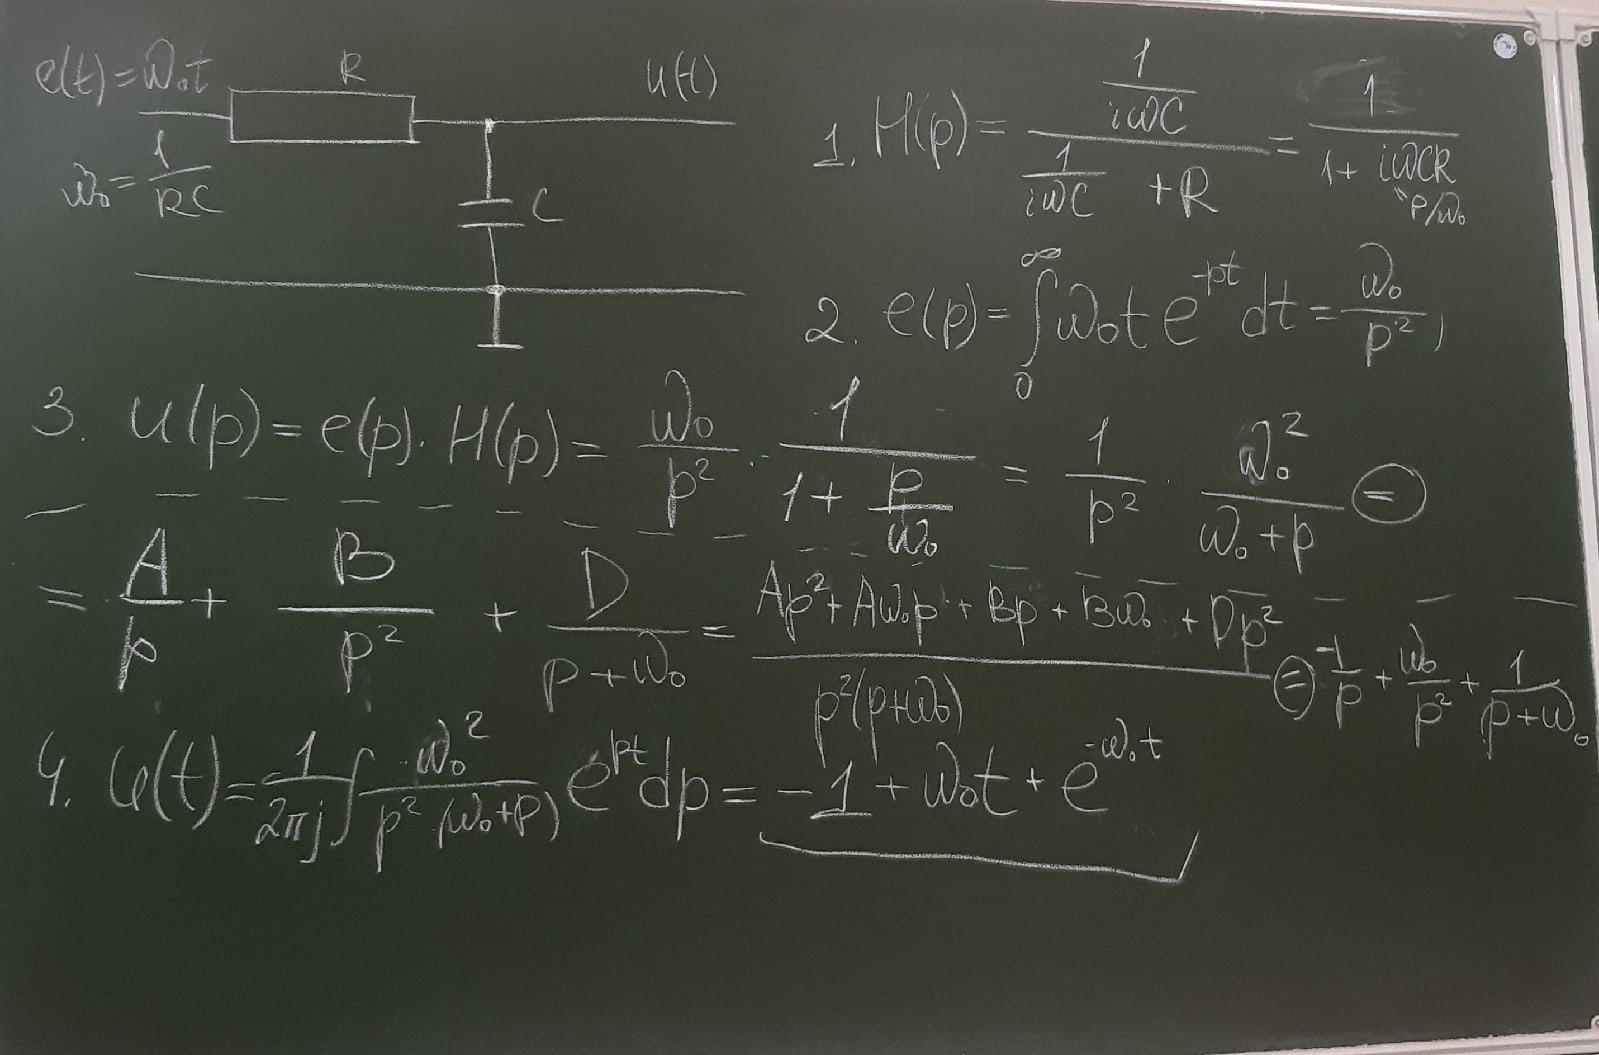 e(t)=ω₀t R u(t)
ω₀=1/RC C
1. H(p)= (1/iωC)/(1/iωC +R) = 1/(1+ iωCR) "P/ω₀
2. e(p)=∫₀^∞ ω₀t e^-pt dt = ω₀/p² )
3. u(p)=e(p)·H(p)= ω₀/p² · 1/(1+ p/ω₀) = 1/p² · ω₀²/(ω₀+p) ⊜
= A/p + B/p² + D/(p+ω₀) = (Ap²+Aω₀p+Bp+Bω₀+Dp²)/(p²(p+ω₀)) ⊜ -1/p + ω₀/p² + 1/(p+ω₀)
4. u(t)= 1/2πj ∫ ω₀²/(p²(ω₀+p)) e^pt dp = -1+ω₀t+e^-ω₀t